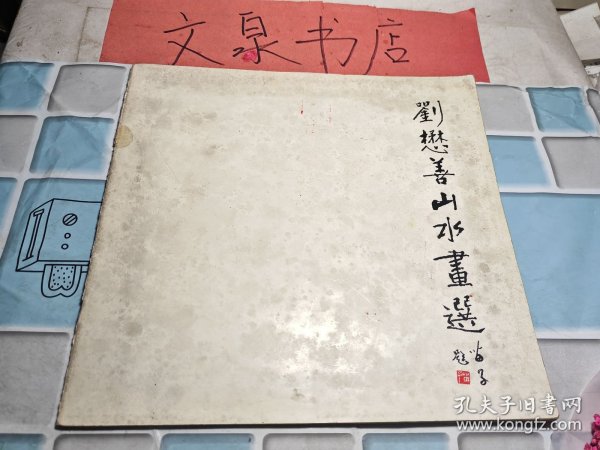 文泉书店
劉懋善山水畫選
孔夫子旧书网
www.kongfz.com